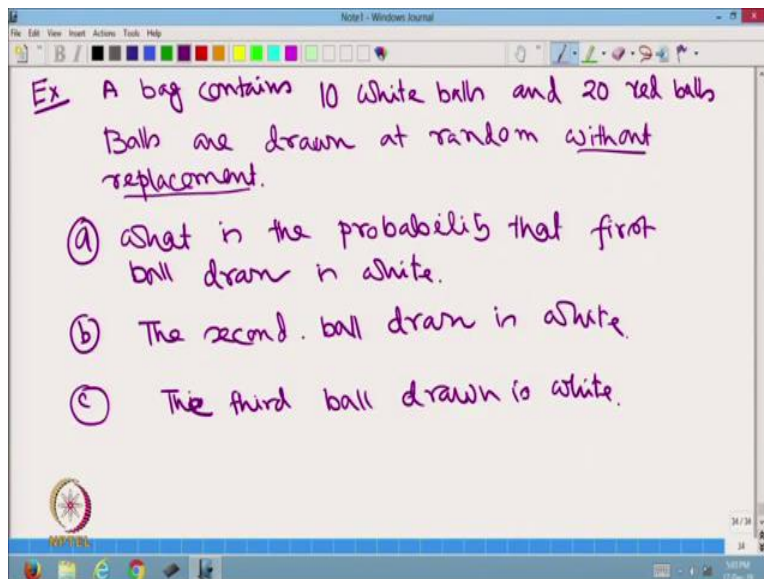 Note1 - Windows Journal
File Edit View Insert Actions Tools Help
Ex A bag contains 10 white balls and 20 red balls
Balls are drawn at random without
replacement.
(a) What is the probability that first
ball drawn is white.
(b) The second. ball drawn is white.
(c) The third ball drawn is white.
NPTEL
34 / 34
34
5:03 PM